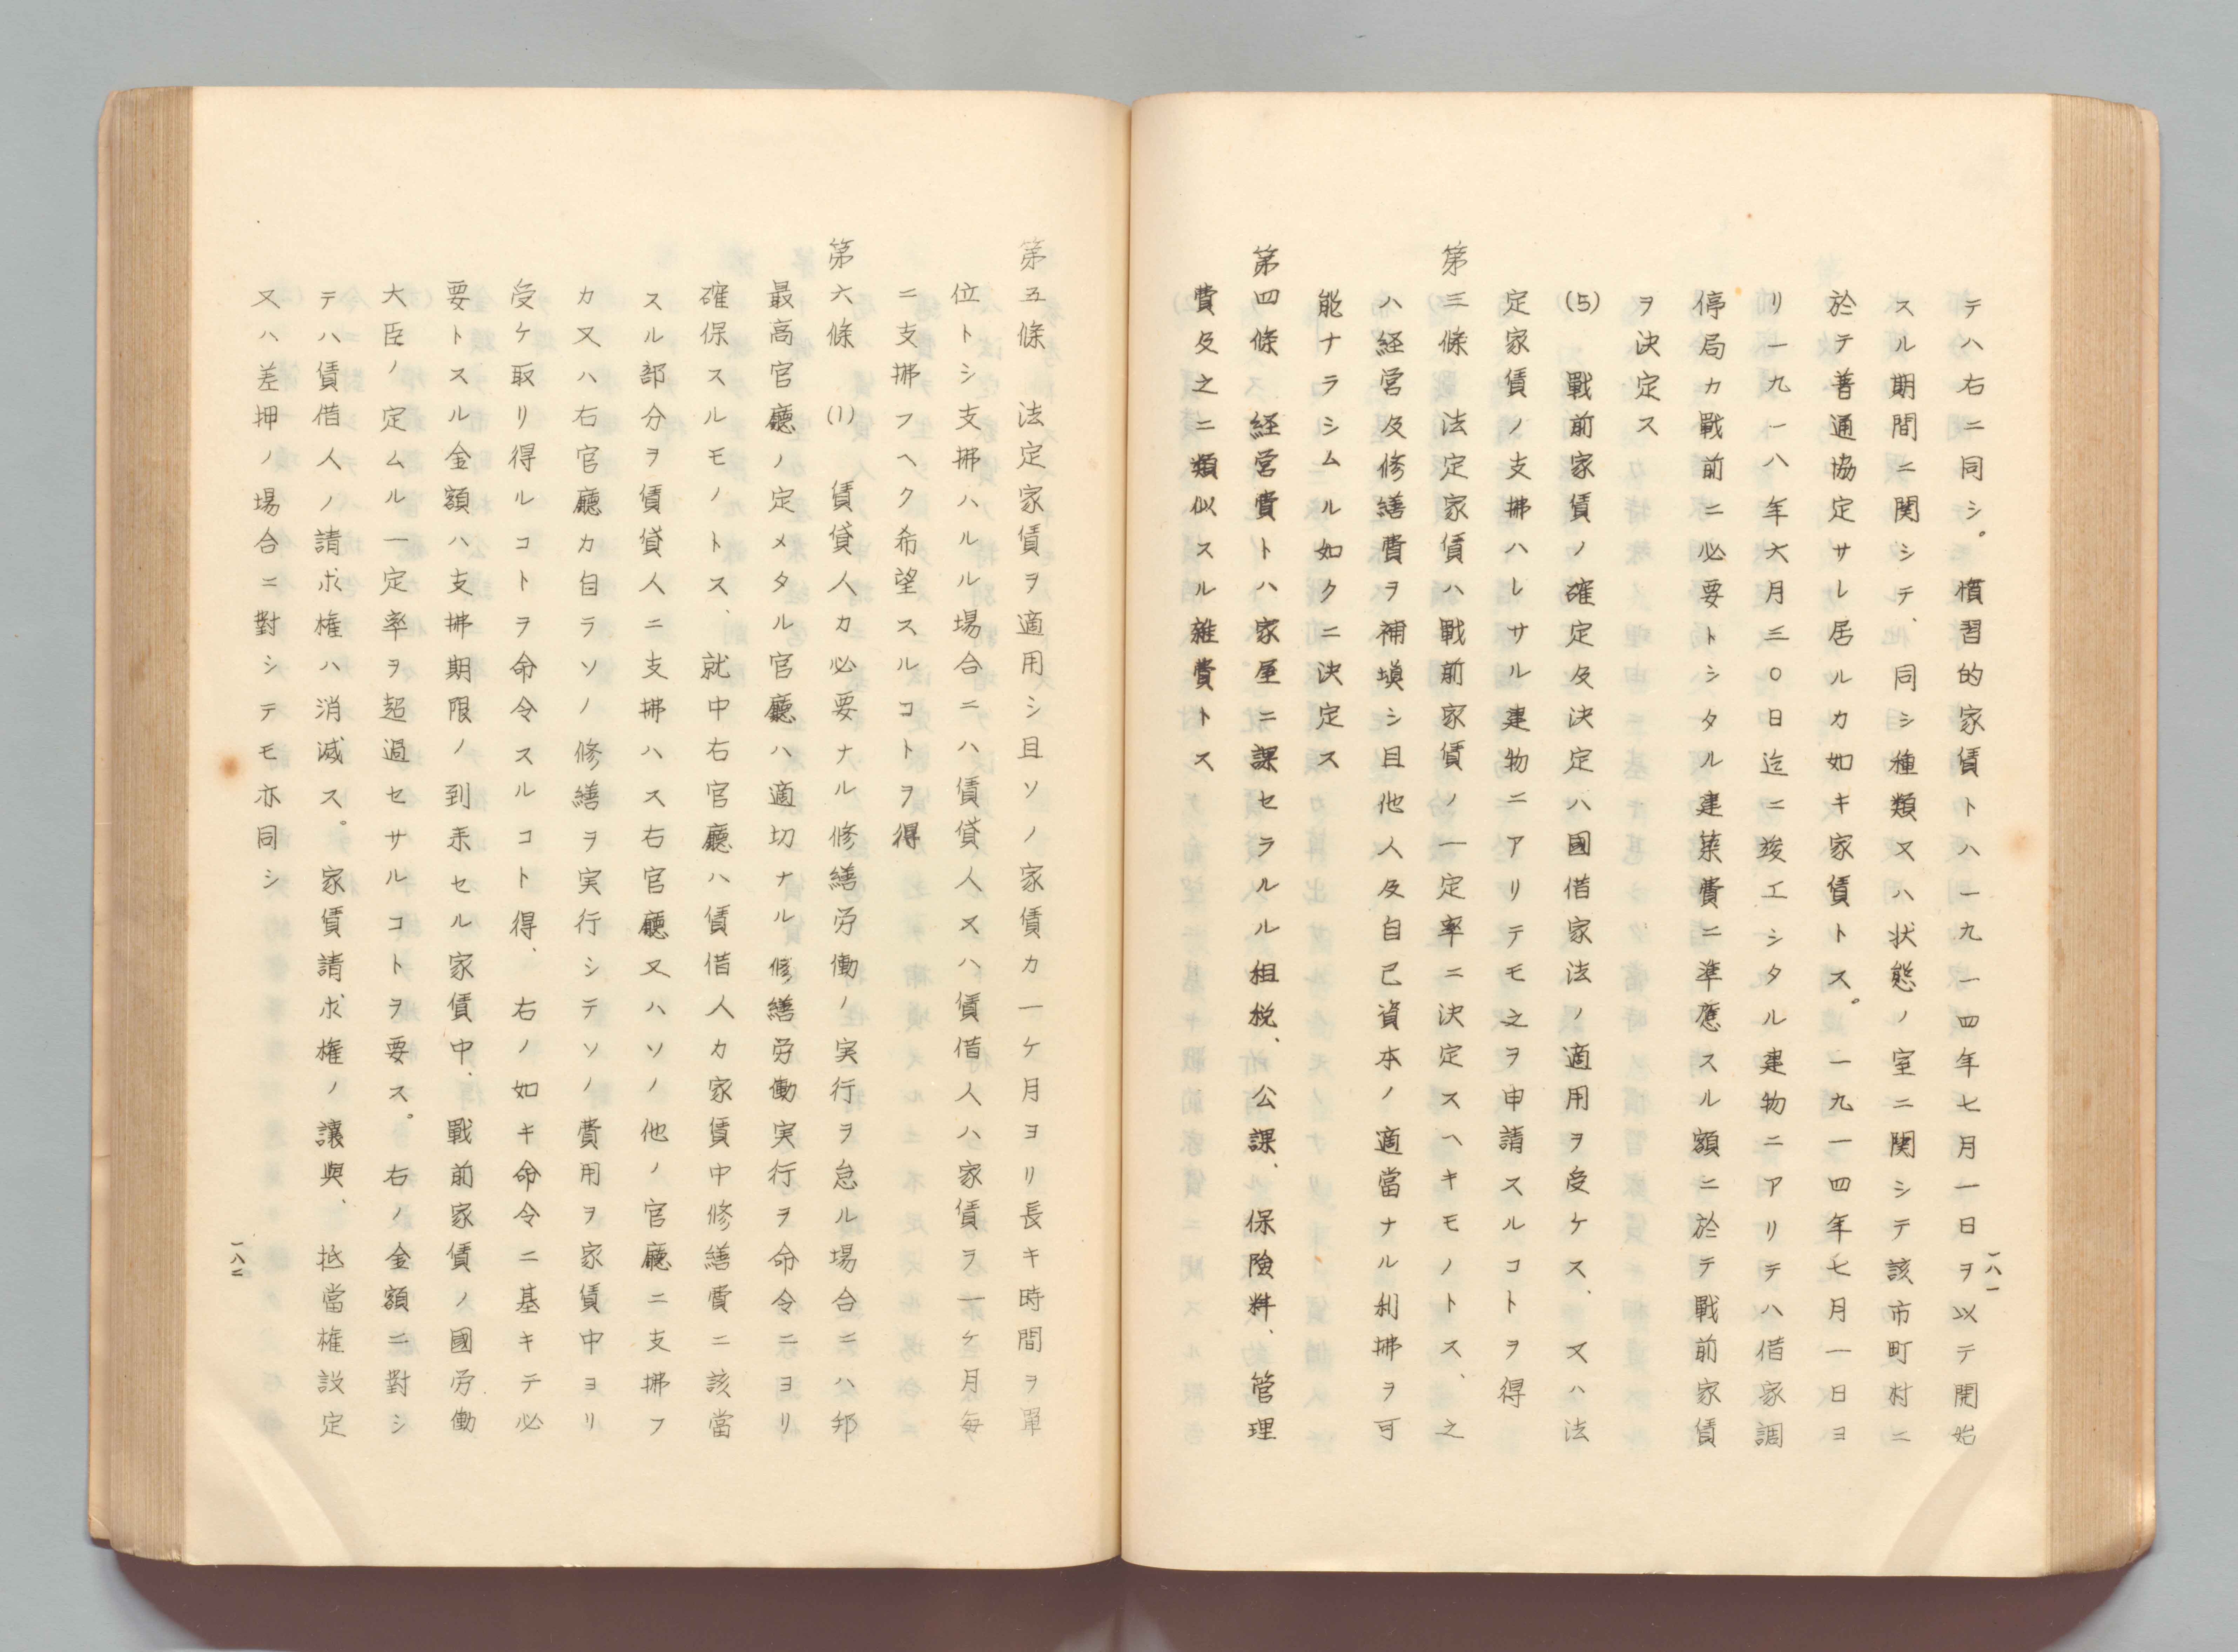 テハ右ニ同シ。慣習的家賃トハ一九一四年七月一日ヲ以テ開始
スル期間ニ関シテ、同シ種類又ハ状態ノ室ニ関シテ該市町村ニ
於テ普通協定サレ居ルカ如キ家賃トス。一九一四年七月一日ヨ
リ一九一八年六月三〇日迄ニ竣工シタル建物ニアリテハ借家調
停局カ戰前ニ必要トシタル建築費ニ準應スル額ニ於テ戰前家賃
ヲ決定ス
(5) 戰前家賃ノ確定及決定ハ國借家法ノ適用ヲ受ケス、又ハ法
定家賃ノ支拂ハレサル建物ニアリテモ之ヲ申請スルコトヲ得
第三條 法定家賃ハ戰前家賃ノ一定率ニ決定スヘキモノトス、之
ハ経営及修繕費ヲ補塡シ且他人及自己資本ノ適當ナル利拂ヲ可
能ナラシムル如クニ決定ス
第四條 経営費トハ家屋ニ課セラルル租税、公課、保険料、管理
費及之ニ類似スル雑費トス
一八一
第五條 法定家賃ヲ適用シ且ソノ家賃カ一ケ月ヨリ長キ時間ヲ單
位トシ支拂ハルル場合ニハ賃貸人又ハ賃借人ハ家賃ヲ一ケ月毎
ニ支拂フヘク希望スルコトヲ得
第六條 (1) 賃貸人カ必要ナル修繕労働ノ実行ヲ怠ル場合ニハ邦
最高官廳ノ定メタル官廳ハ適切ナル修繕労働実行ヲ命令ニヨリ
確保スルモノトス、就中右官廳ハ賃借人カ家賃中修繕費ニ該當
スル部分ヲ賃貸人ニ支拂ハス右官廳又ハソノ他ノ官廳ニ支拂フ
カ又ハ右官廳カ自ラソノ修繕ヲ実行シテソノ費用ヲ家賃中ヨリ
受ケ取リ得ルコトヲ命令スルコト得、右ノ如キ命令ニ基キテ必
要トスル金額ハ支拂期限ノ到来セル家賃中、戰前家賃ノ國労働
大臣ノ定ムル一定率ヲ超過セサルコトヲ要ス。右ノ金額ニ對シ
テハ賃借人ノ請求権ハ消滅ス。家賃請求権ノ讓與、抵當権設定
又ハ差押ノ場合ニ對シテモ亦同シ
一八二